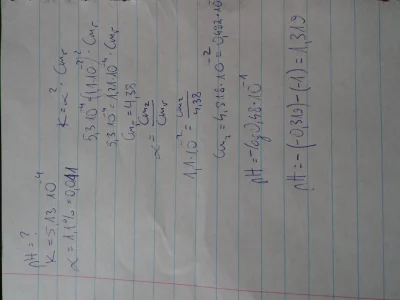 pH = ?
K = 5,3 · 10⁻⁴
α = 1,1% = 0,011
K = α² · Cmr
5,3·10⁻⁴ = (1,1·10⁻²)² · Cmr
5,3·10⁻⁴ = 1,21·10⁻⁴ · Cmr
Cmr = 4,38
α = Cm₂ / Cmr
1,1·10⁻² = Cm₂ / 4,38
Cm₂ = 4,818·10⁻² = 0,482·10
pH = -log 0,48·10⁻¹
pH = -(-0,319) - (-1) = 1,319